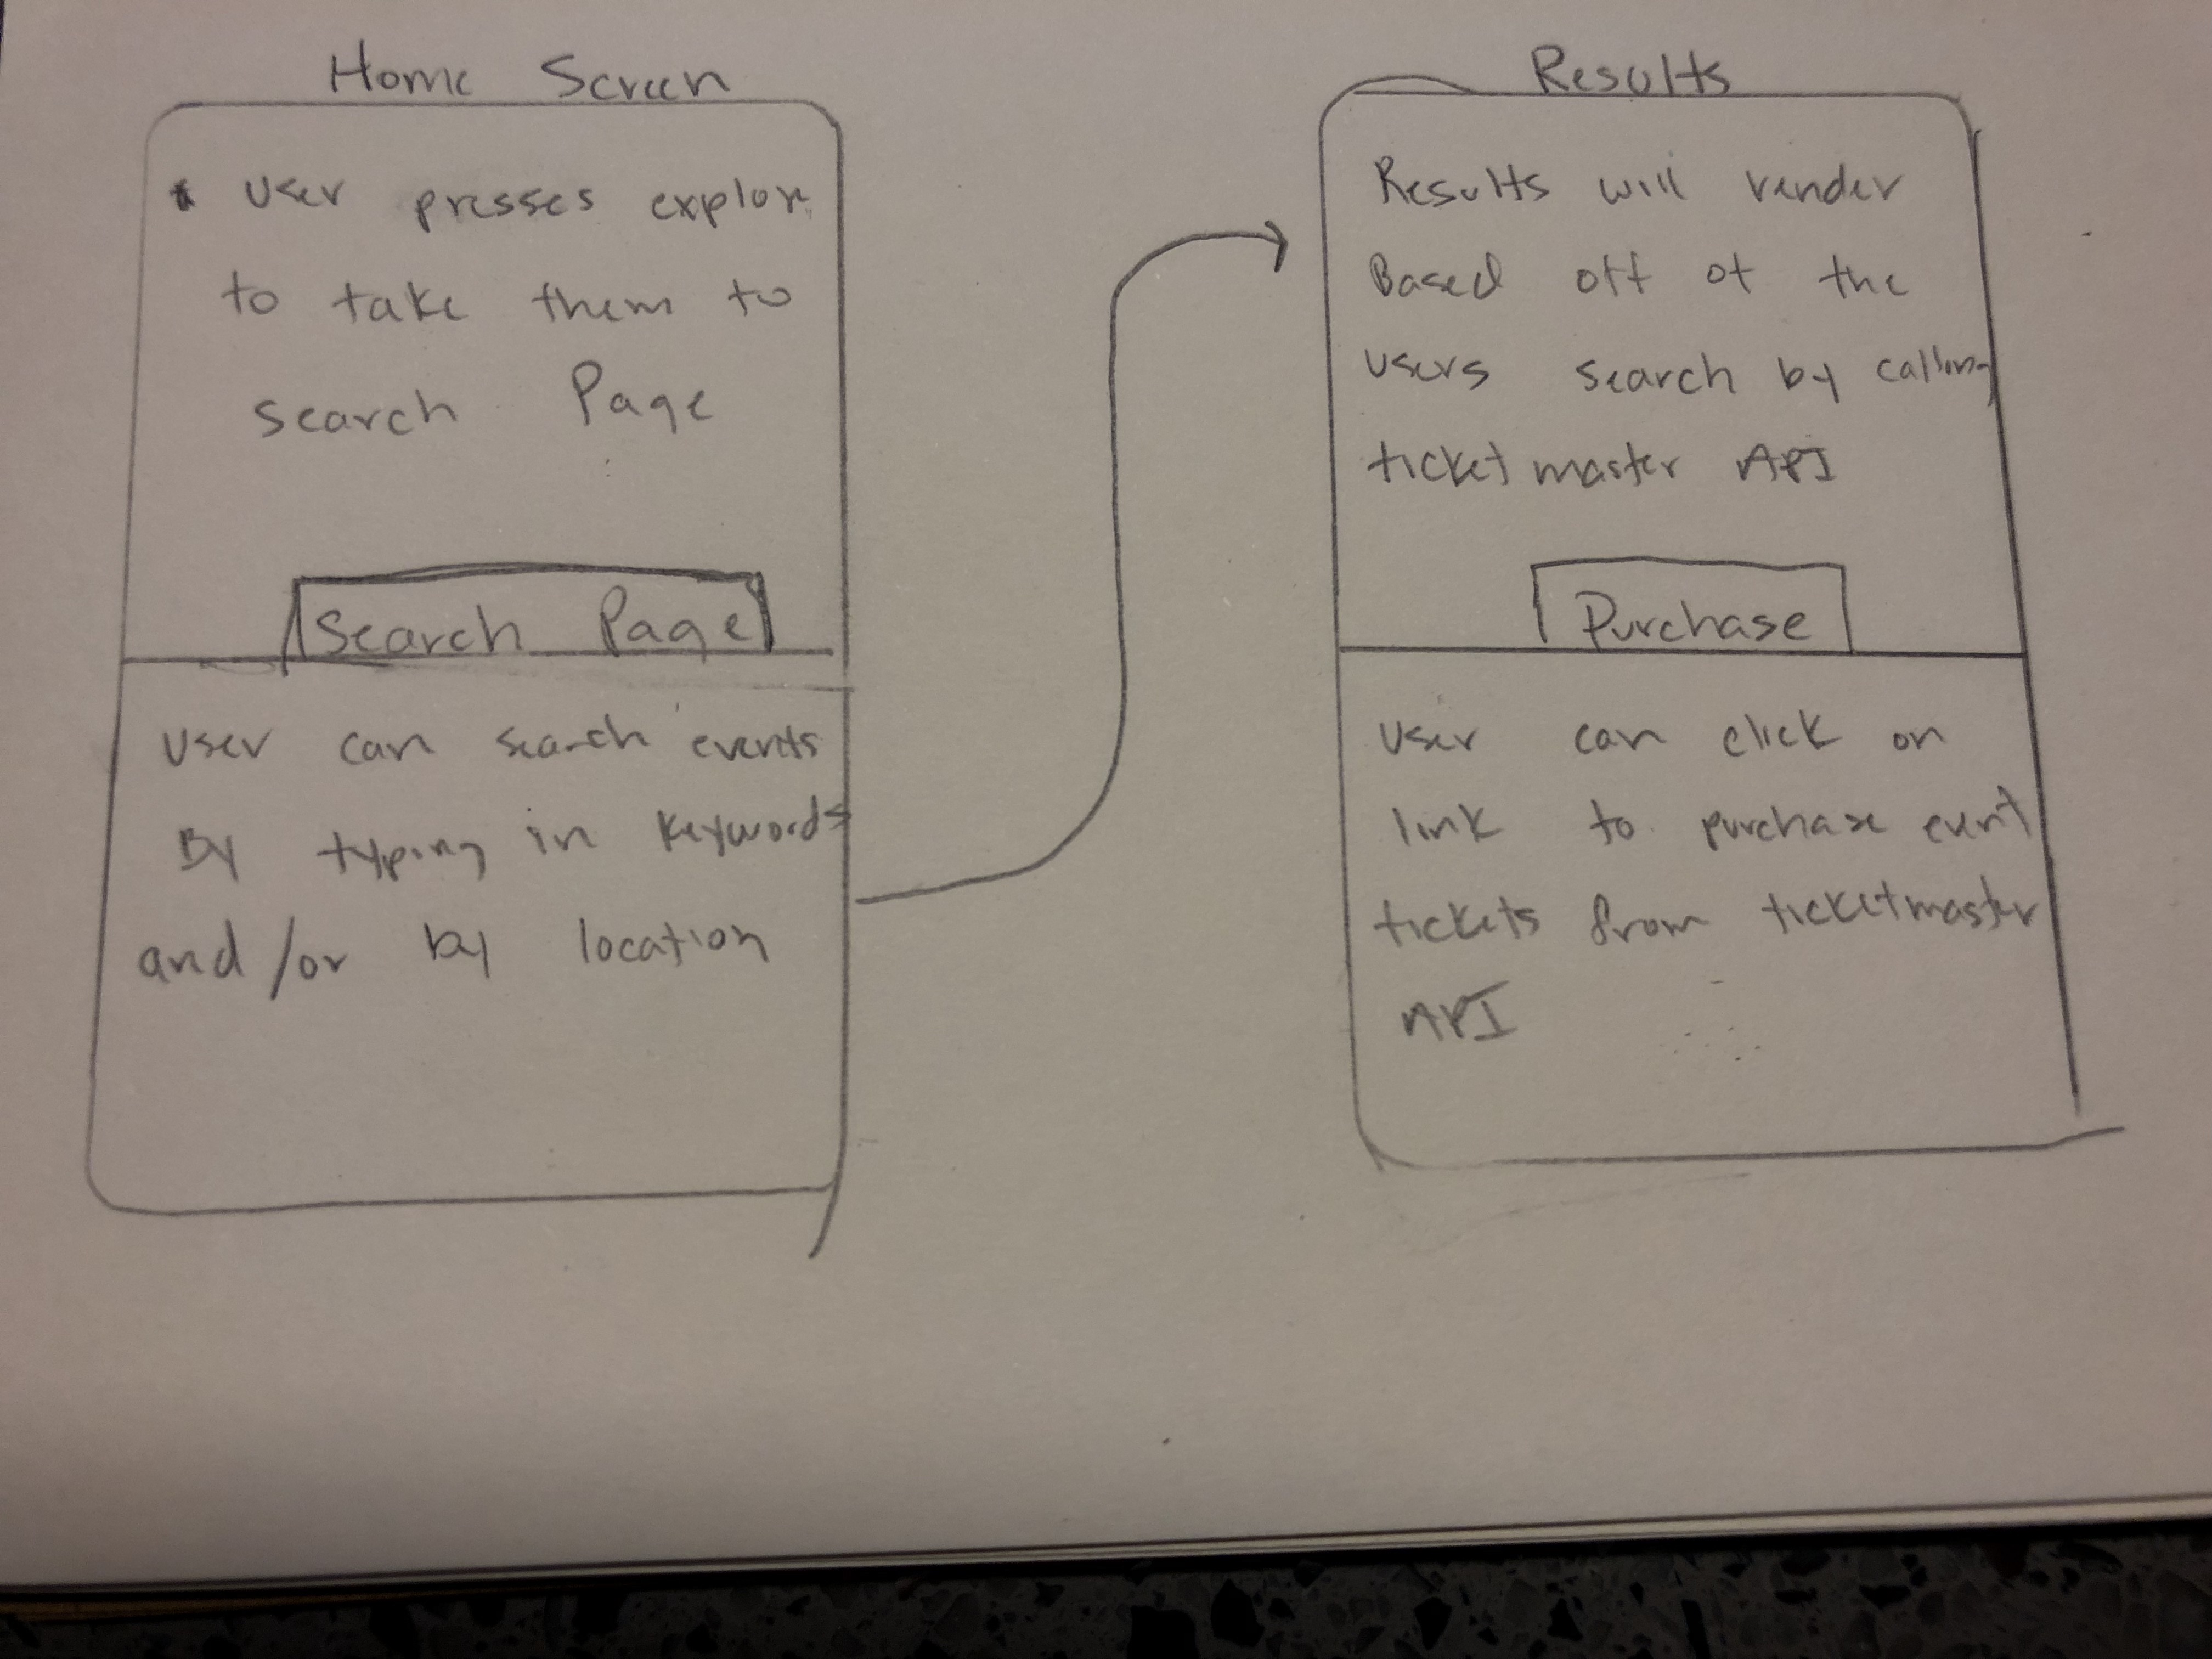 Home Screen
* User presses explore
to take them to
search Page
Search Page
User can search events
By typing in keywords
and/or by location
Results
Results will render
Based off of the
users search by calling
ticketmaster API
Purchase
User can click on
link to purchase event
tickets from ticketmaster
API